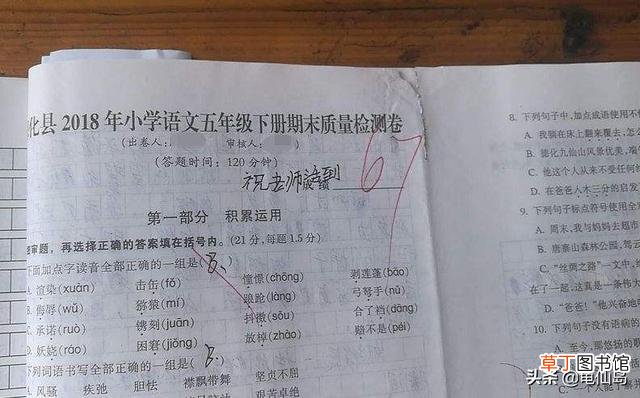 化县 2018 年小学语文五年级下册期末质量检测卷
(出卷人: 审核人: )
(答题时间: 120 分钟)
祝老师活到
67
第一部分 积累运用
审题，再选择正确的答案填在括号内。(21 分,每题 1.5 分)
下面加点字读音全部正确的一组是( B、
A. 渲染(xuàn) 击缶(fǒ) 憧憬(chōng) 剥莲蓬(bāo)
B. 侮辱(wǔ) 猕猴(mí) 踉跄(làng) 弓弩手(nǔ)
C. 承诺(ruò) 镌刻(juān) 抖擞(sǒu) 合了裆(dāng)
D. 妖娆(ráo) 困窘(jiǒng) 放棹(zhào) 赔不是(péi)
下列词语书写全部正确的一组是( B、
A. 风骚 疾弛 胆怯 襟飘带舞 坚贞不屈
艰苦卓绝
8. 下列句子中，加点成语使用不
A. 我躺在床上翻来覆去，怎么
B. 德化九仙山风景优美，
C. 他这个人从来不受任何
D. 在爸爸入木三分的启发
9. 下列句子标点符号使用全
A. 周末，我与妈妈去超市
B. 唐寨山森林公园，
C. “丝绸之路”一文中，
在了一起，这真是一条伟大
D. “爸爸！”他兴奋地
10. 下列句子没有语病的
A. 至今，那悠扬的
草丁图书馆
头条 @龟仙岛